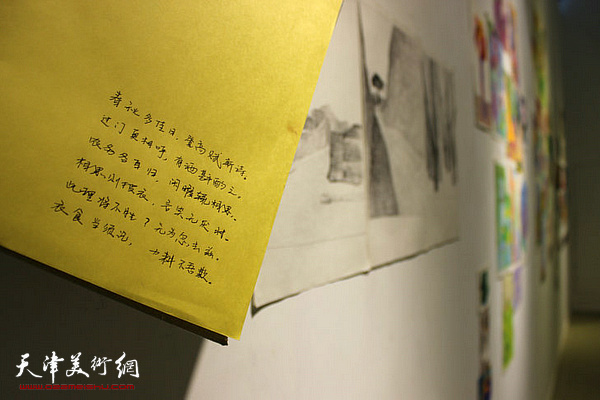 春秋多佳日，登高赋新诗。
过门更相呼，有酒斟酌之。
农务各自归，闲暇辄相思。
相思则披衣，言笑无厌时。
此理将不胜？无为忽去兹。
衣食当须纪，力耕不吾欺。
天津美術網